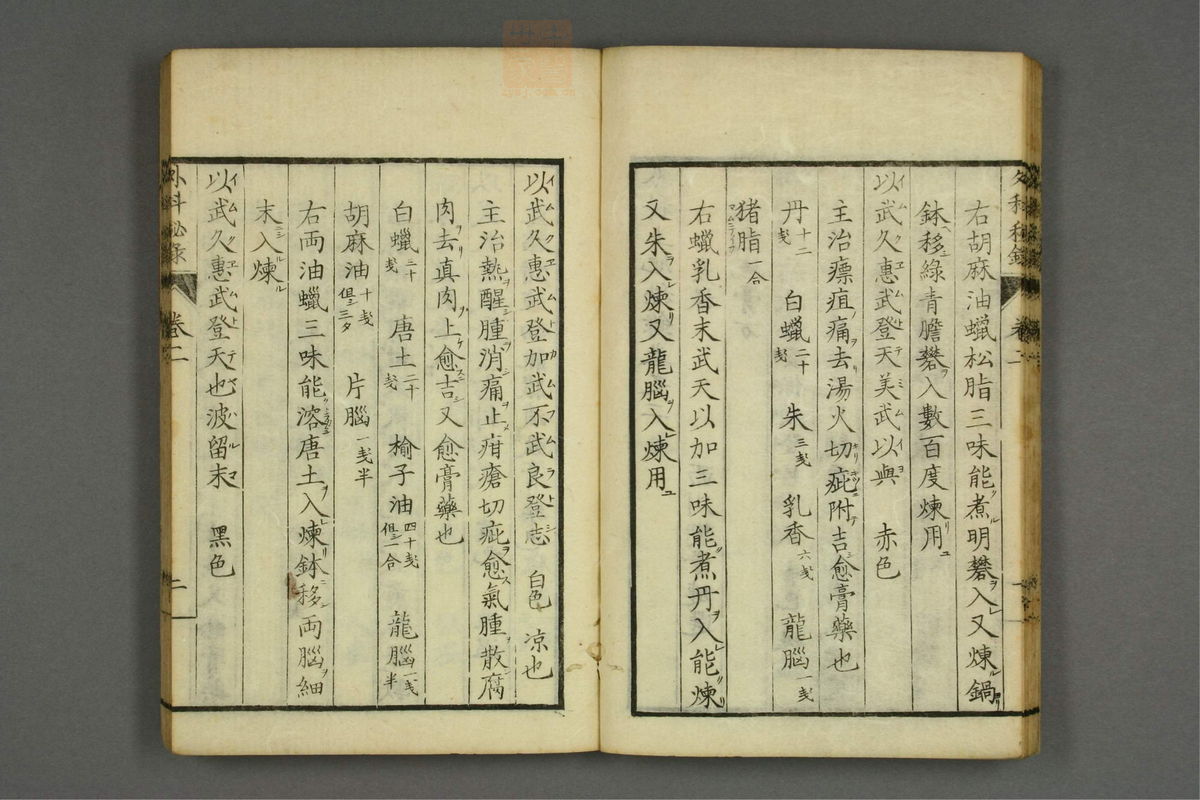 右胡麻油蠟松脂三味能煮明礬入又煉鍋
鉢移緑青膽礬入數百度煉用
以武久惠武登天美武以與 赤色
主治瘭疽痛去湯火切疵附吉愈膏藥也
丹十二戔 白蠟二十戔 朱三戔 乳香六戔 龍腦一戔
猪脂一合
右蠟乳香末武天以加三味能煮丹入能煉
又朱入煉又龍腦入煉用
外科秘録 卷二
以武久惠武登加武不武良登志 白色 凉也
主治熱醒腫消痛止疳瘡切疵愈氣腫散腐
肉去真肉上愈吉又愈膏藥也
白蠟三十戔 唐土二十戔 榆子油四十戔 但一合 龍腦一戔半
胡麻油十戔 但三夕 片腦一戔半
右両油蠟三味能溶唐土入煉鉢移両腦細
末入煉
以武久惠武登天也波留末 黑色
外科秘録 卷二 二